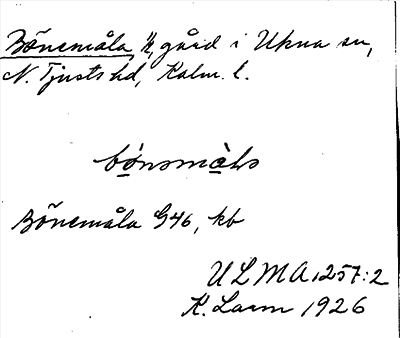 Bönemåla, 1/2 gård i Ukna sn,
N. Tjusts hd, Kalm. l.
bònsmà̀ls
Bönemåla G46, kb
ULMA 1257:2
K. Larm 1926